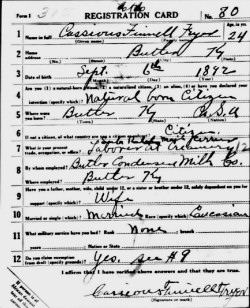 Form 1
REGISTRATION CARD No. 80
1 Name in full Cassious Finnell Fryer Age, in yrs. 24
2 Home address Butler Ky
3 Date of birth Sept. 6th 1892
4 Natural born Citizen
5 Where were you born? Butler Ky U.S.A.
6 If not a citizen, of what country are you a citizen or subject? Citizen
7 What is your present trade, occupation, or office? Laborer at Creamery
8 By whom employed? Butler Condensed Milk Co.
Where employed? Butler Ky
9 Have you a father, mother, wife, child under 12, or a sister or brother under 12, solely dependent on you for support (specify which)? Wife
10 Married or single (which)? Married Race (specify which)? Caucasian
11 What military service have you had? Rank None ; branch
years ; Nation or State
12 Do you claim exemption from draft (specify grounds)? Yes. see #9
I affirm that I have verified above answers and that they are true.
Cassious Finnell Fryer
(Signature or mark)